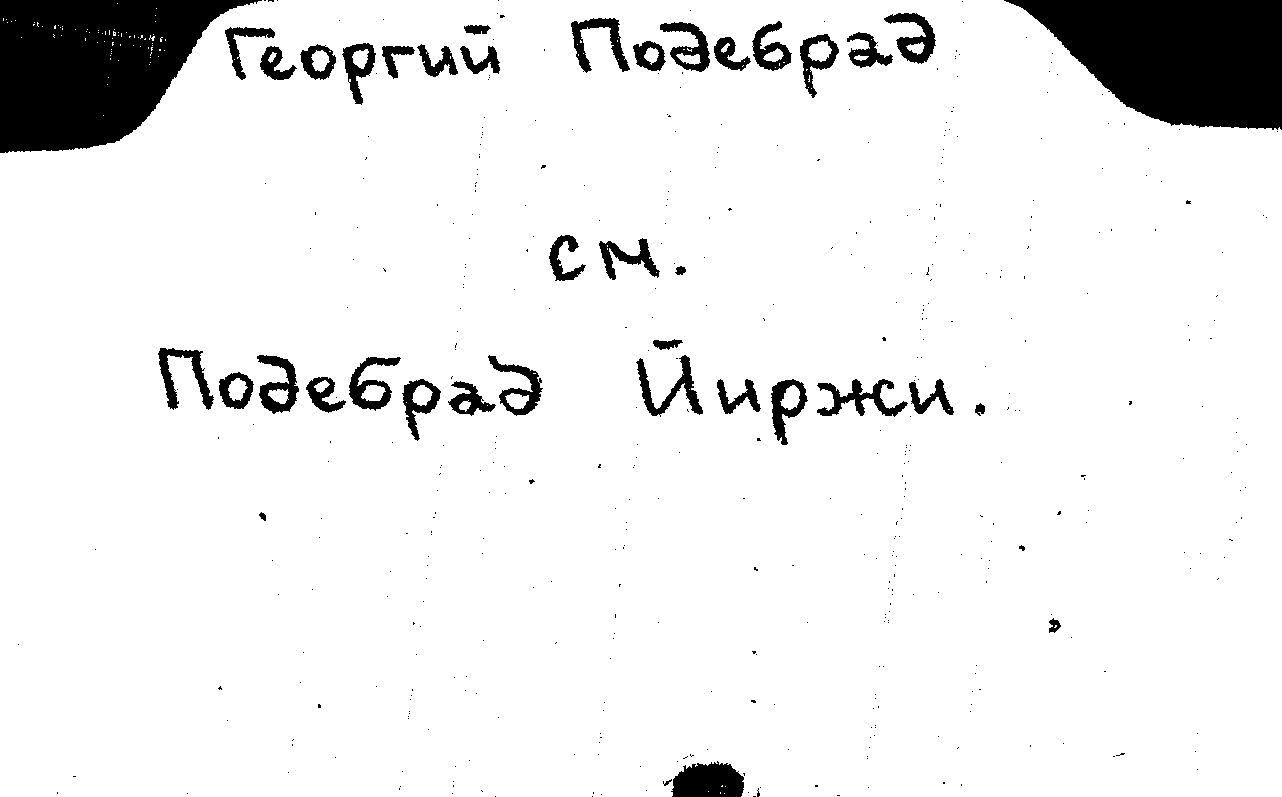 Георгий Подебрад
см.
Подебрад Йиржи.